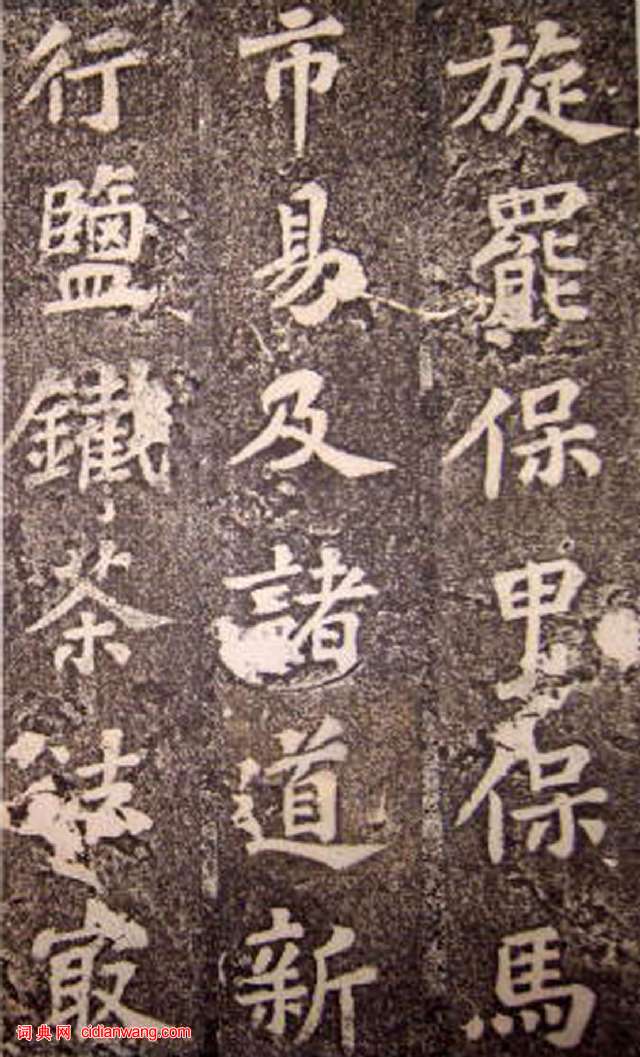 旋罷保甲保馬
市易及諸道新
行鹽鐵茶法㝡
词典网 cidianwang.com